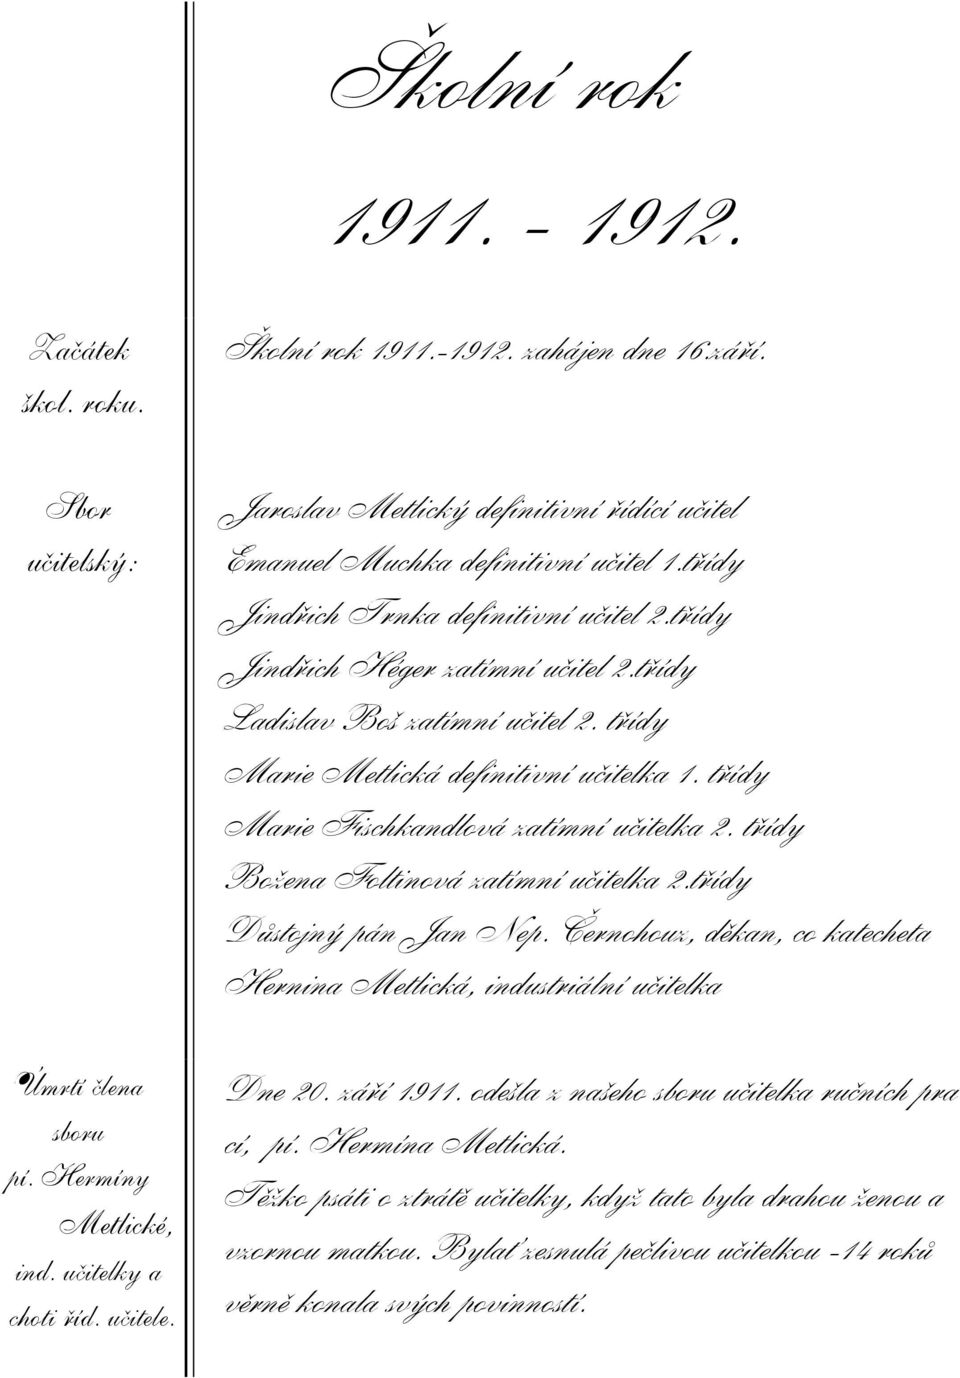 Školní rok
1911. - 1912.
Začátek
škol. roku.
Školní rok 1911.-1912. zahájen dne 16.září.
Sbor
učitelský:
Jaroslav Metlický definitivní řídící učitel
Emanuel Muchka definitivní učitel 1.třídy
Jindřich Trnka definitivní učitel 2.třídy
Jindřich Héger zatímní učitel 2.třídy
Ladislav Boš zatímní učitel 2. třídy
Marie Metlická definitivní učitelka 1. třídy
Marie Fischkandlová zatímní učitelka 2. třídy
Božena Foltinová zatímní učitelka 2.třídy
Důstojný pán Jan Nep. Černohouz, děkan, co katecheta
Hernina Metlická, industriální učitelka
Úmrtí člena
sboru
pí. Hermíny
Metlické,
ind. učitelky a
choti říd. učitele.
Dne 20. září 1911. odešla z našeho sboru učitelka ručních pra
cí, pí. Hermína Metlická.
Těžko psáti o ztrátě učitelky, když tato byla drahou ženou a
vzornou matkou. Bylať zesnulá pečlivou učitelkou -14 roků
věrně konala svých povinností.